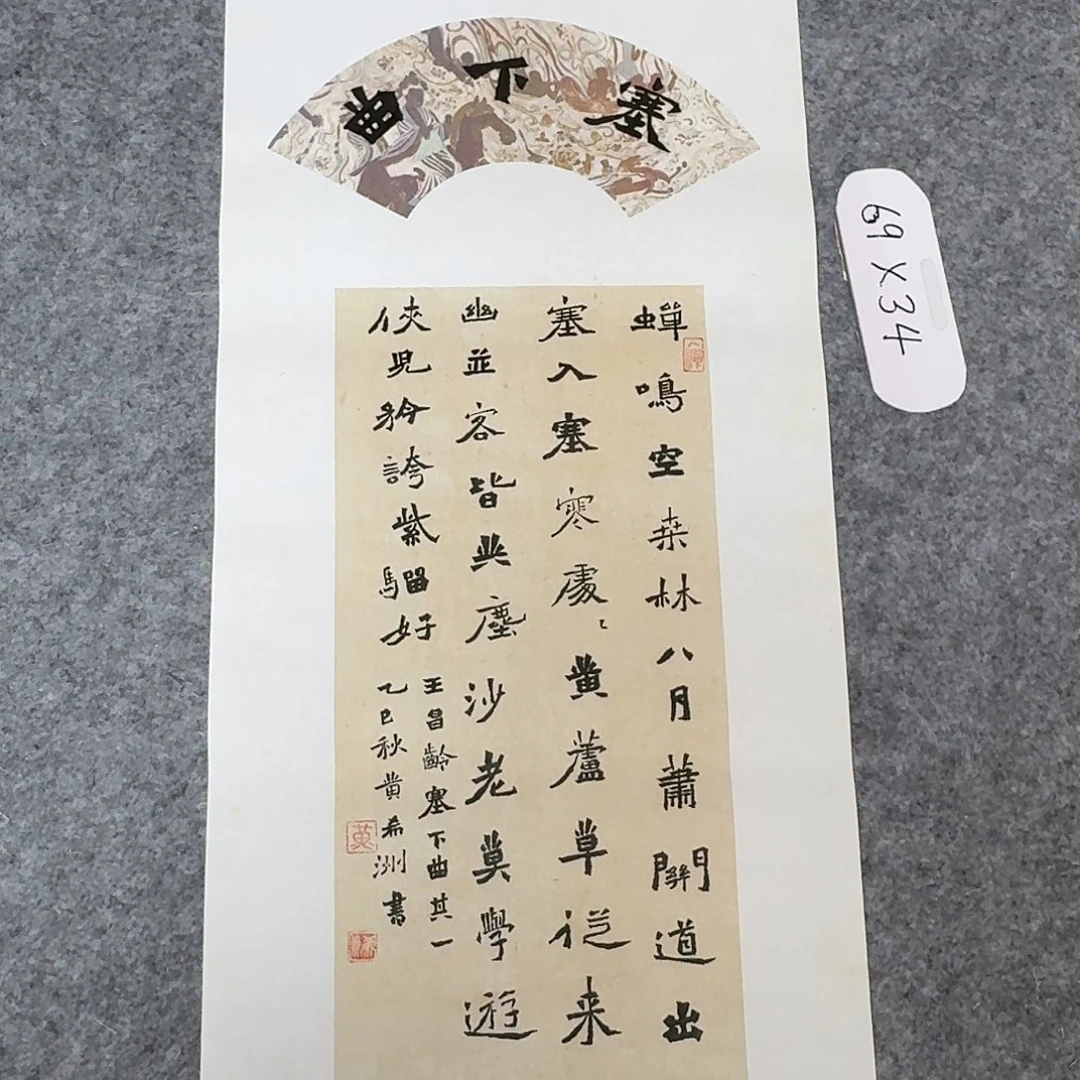 塞下曲
蟬鳴空桒林八月蕭關道出
塞入塞寒處〻黄蘆草從来
幽並客皆共塵沙老莫學遊
俠兒矜誇紫騮好
王昌齡塞下曲其一
乙巳秋黄希洲書
黄
69X34